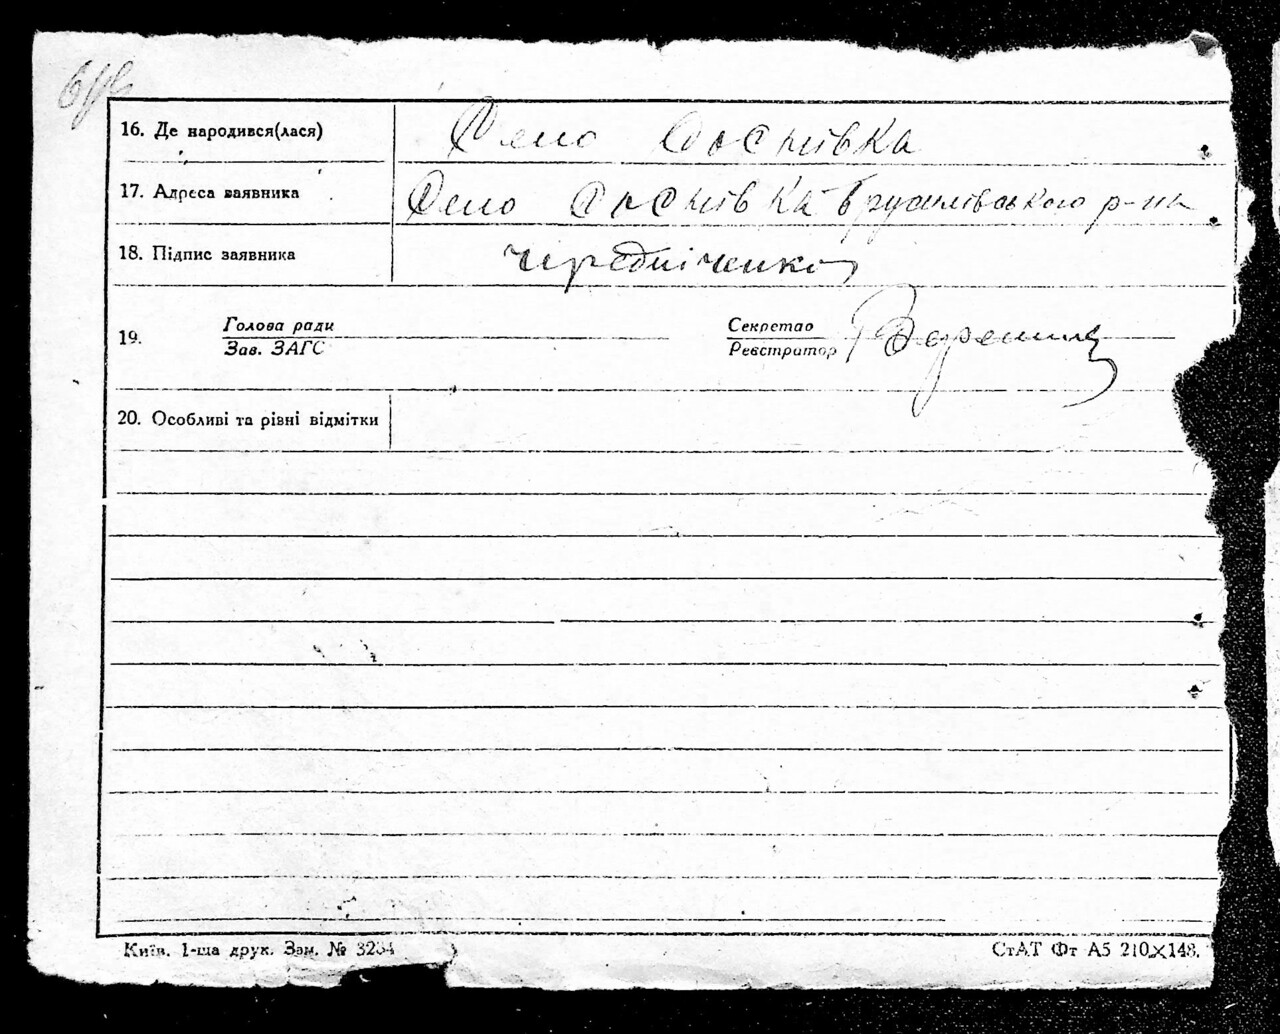 16. Де народився(лася) Село Соснівка
17. Адреса заявника Село Соснівка Брусилівського р-на
18. Підпис заявника Чередніченко
19. Голова ради
Зав. ЗАГС
Секретар
Реєстратор
20. Особливі та різні відмітки
Київ. 1-ша друк. Зам. № 3234
СтАТ Фт А5 210×148.